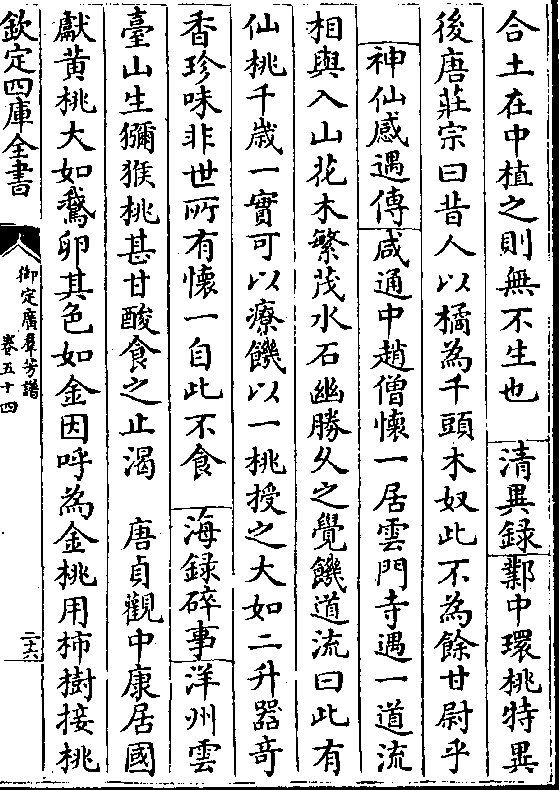 合土在中植之則無不生也　清異録　鄴中環桃特異
後唐莊宗曰昔人以橘為千頭木奴此不為餘甘尉乎
神仙感遇傳　咸通中趙僧懷一居雲門寺遇一道流
相與入山花木繁茂水石幽勝久之覺饑道流曰此有
仙桃千歲一實可以療饑以一桃授之大如二升器竒
香珍味非世所有懷一自此不食　海録碎事　洋州雲
臺山生獼猴桃甚甘酸食之止渴　唐貞觀中康居國
獻黄桃大如鵞卵其色如金因呼為金桃用柿樹接桃
欽定四庫全書
御定廣羣芳譜
卷五十四
二十六